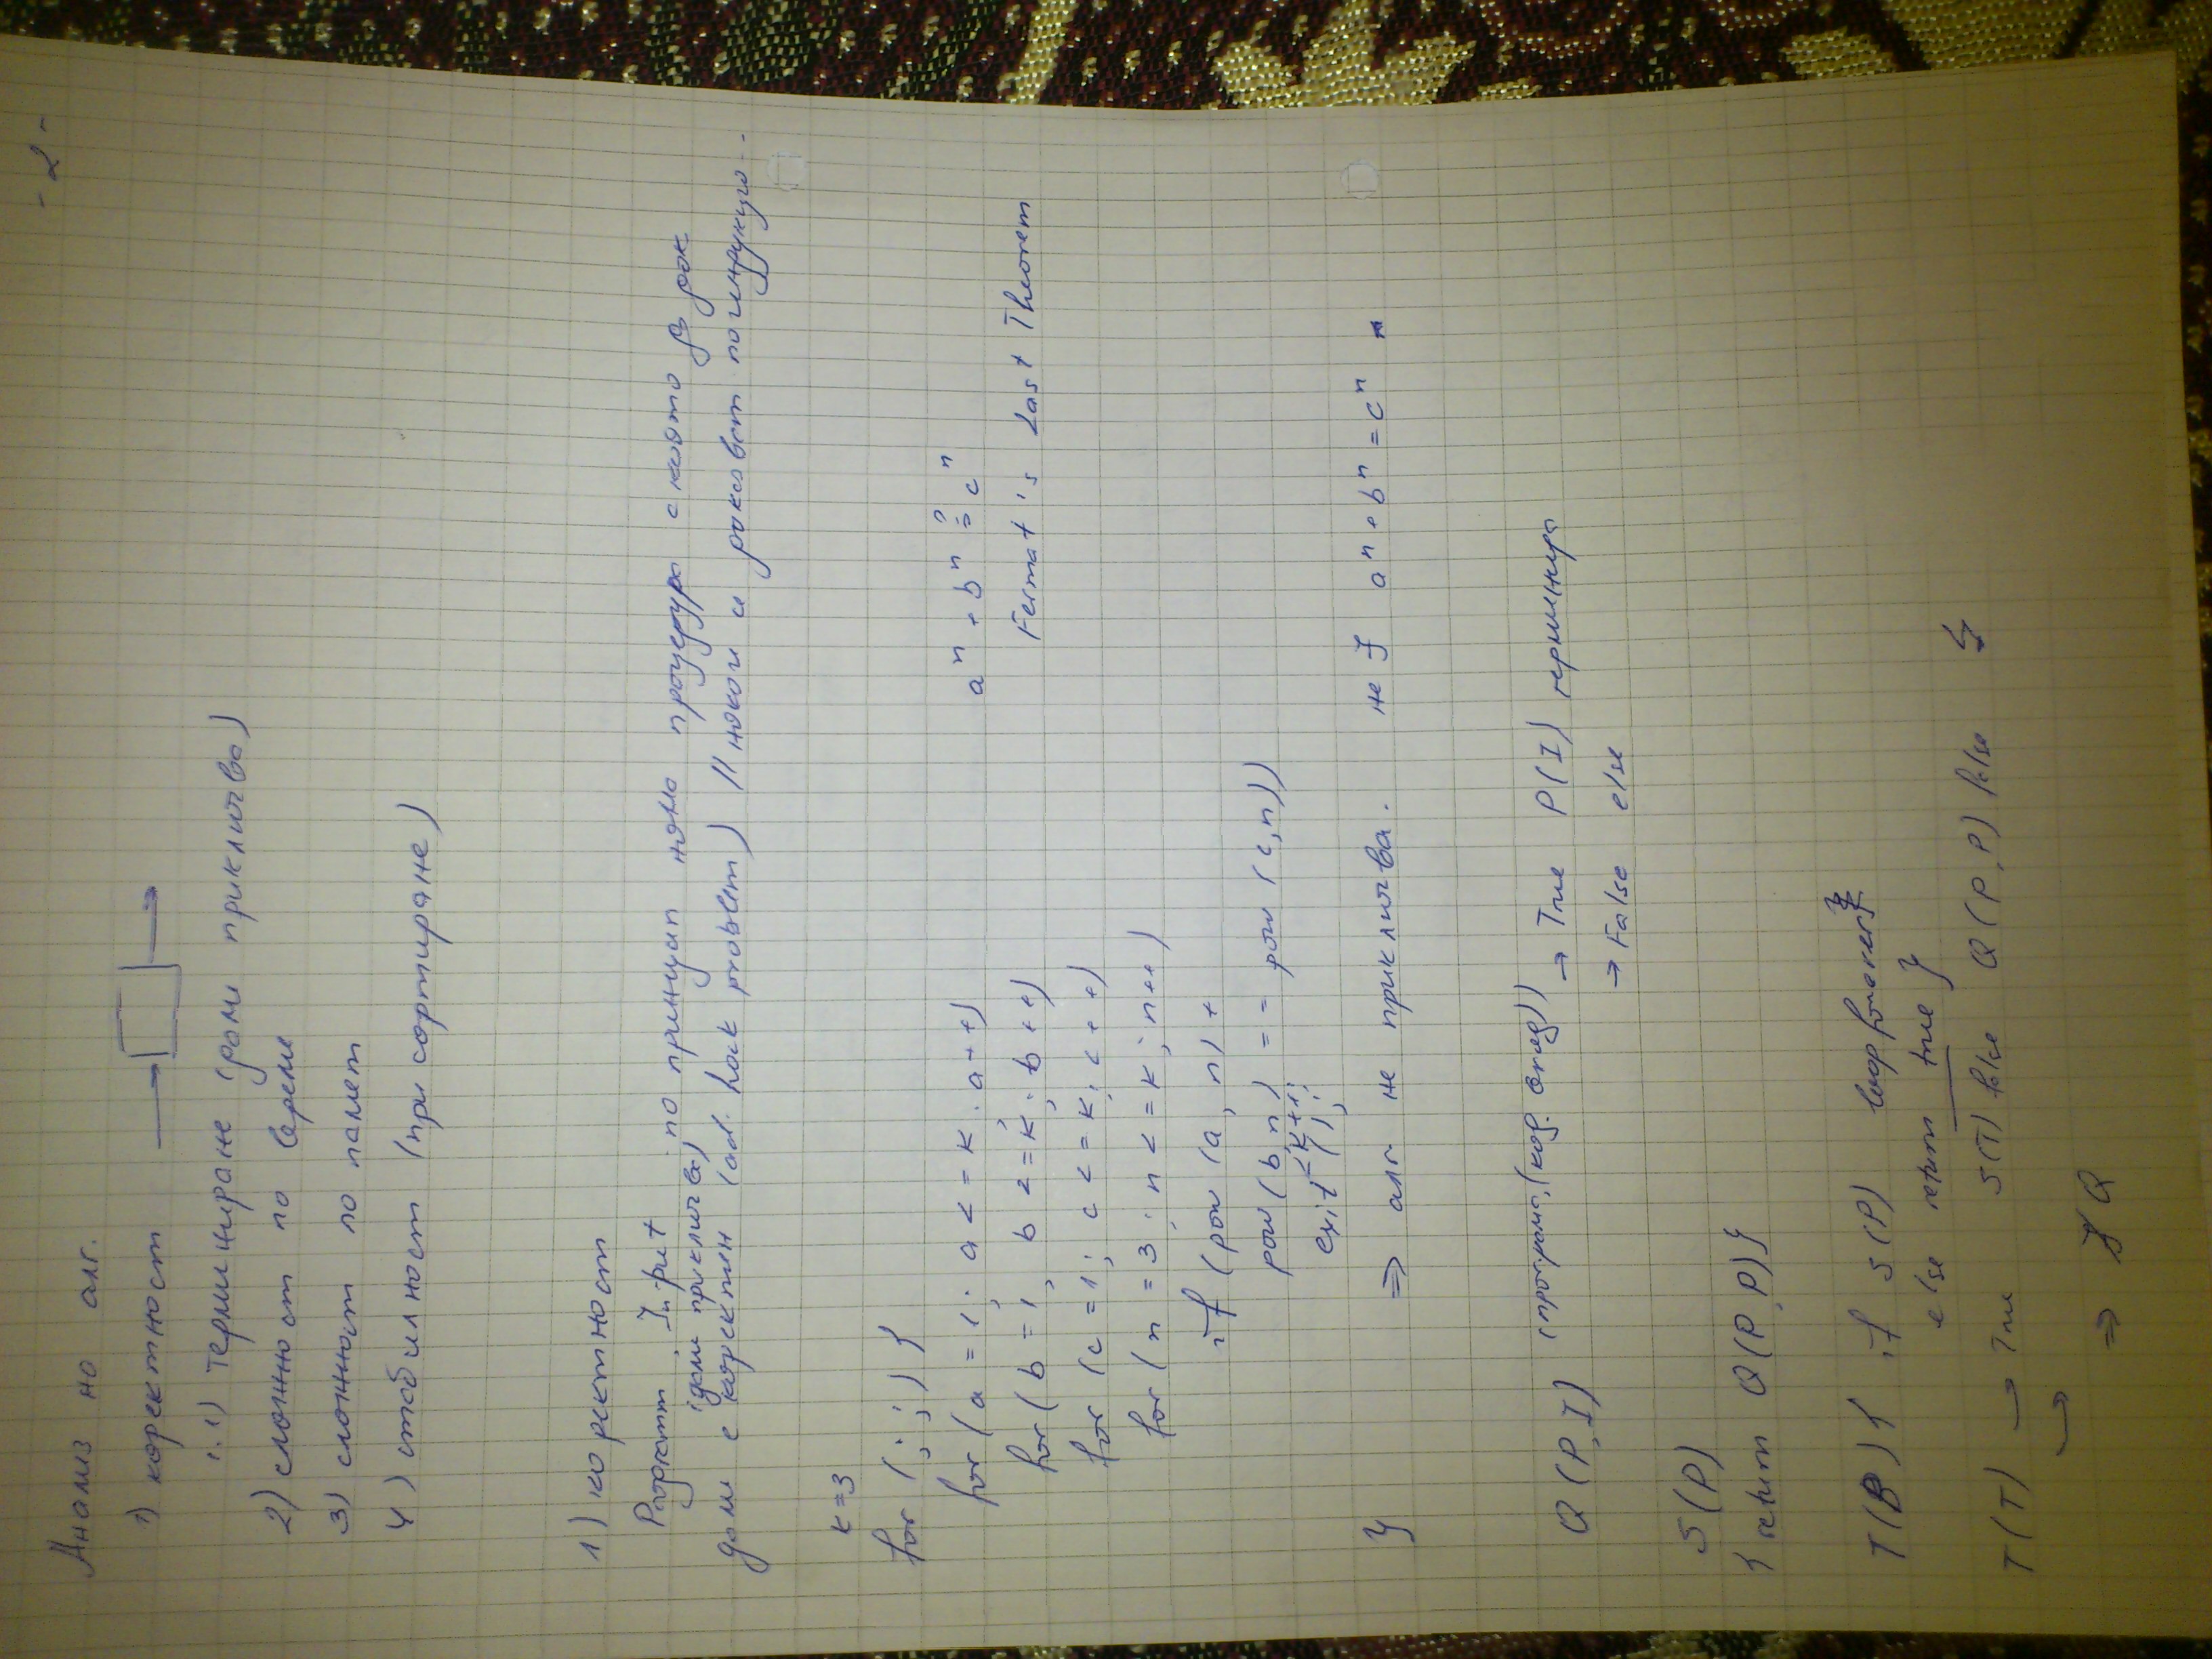 - 2 -
Анализ на алг.
1) коректност
1.1) терминиране (дали приключва)
2) сложност по време
3) сложност по памет
4) стабилност (при сортиране)
1) коректност
Program Input
(дали приключва) по принцип няма процедура с която да
дали е коректен (ad. hock problem) // някои и доказват по индукция..
k=3
for (;;) {
for (a = 1; a <= k; a++) aⁿ + bⁿ ≟ cⁿ
for (b = 1; b <= k; b++) Fermat's Last Theorem
for (c = 1; c <= k; c++)
for (n = 3; n <= k; n++)
if (pow (a, n) +
pow (b, n) == pow (c, n))
exit ();
k++;
} ⇒ алг не приключва. не ∃ aⁿ + bⁿ = cⁿ
Q (P, I) (програма, (код. вход)) → True P(I) терминира
→ False else
S(P)
{ return Q(P, P)}
T(P) { if S(P) loop forever;
else return true }
T(T) → True S(T) false Q(P, P) false ↯
⇒ ∄ Q